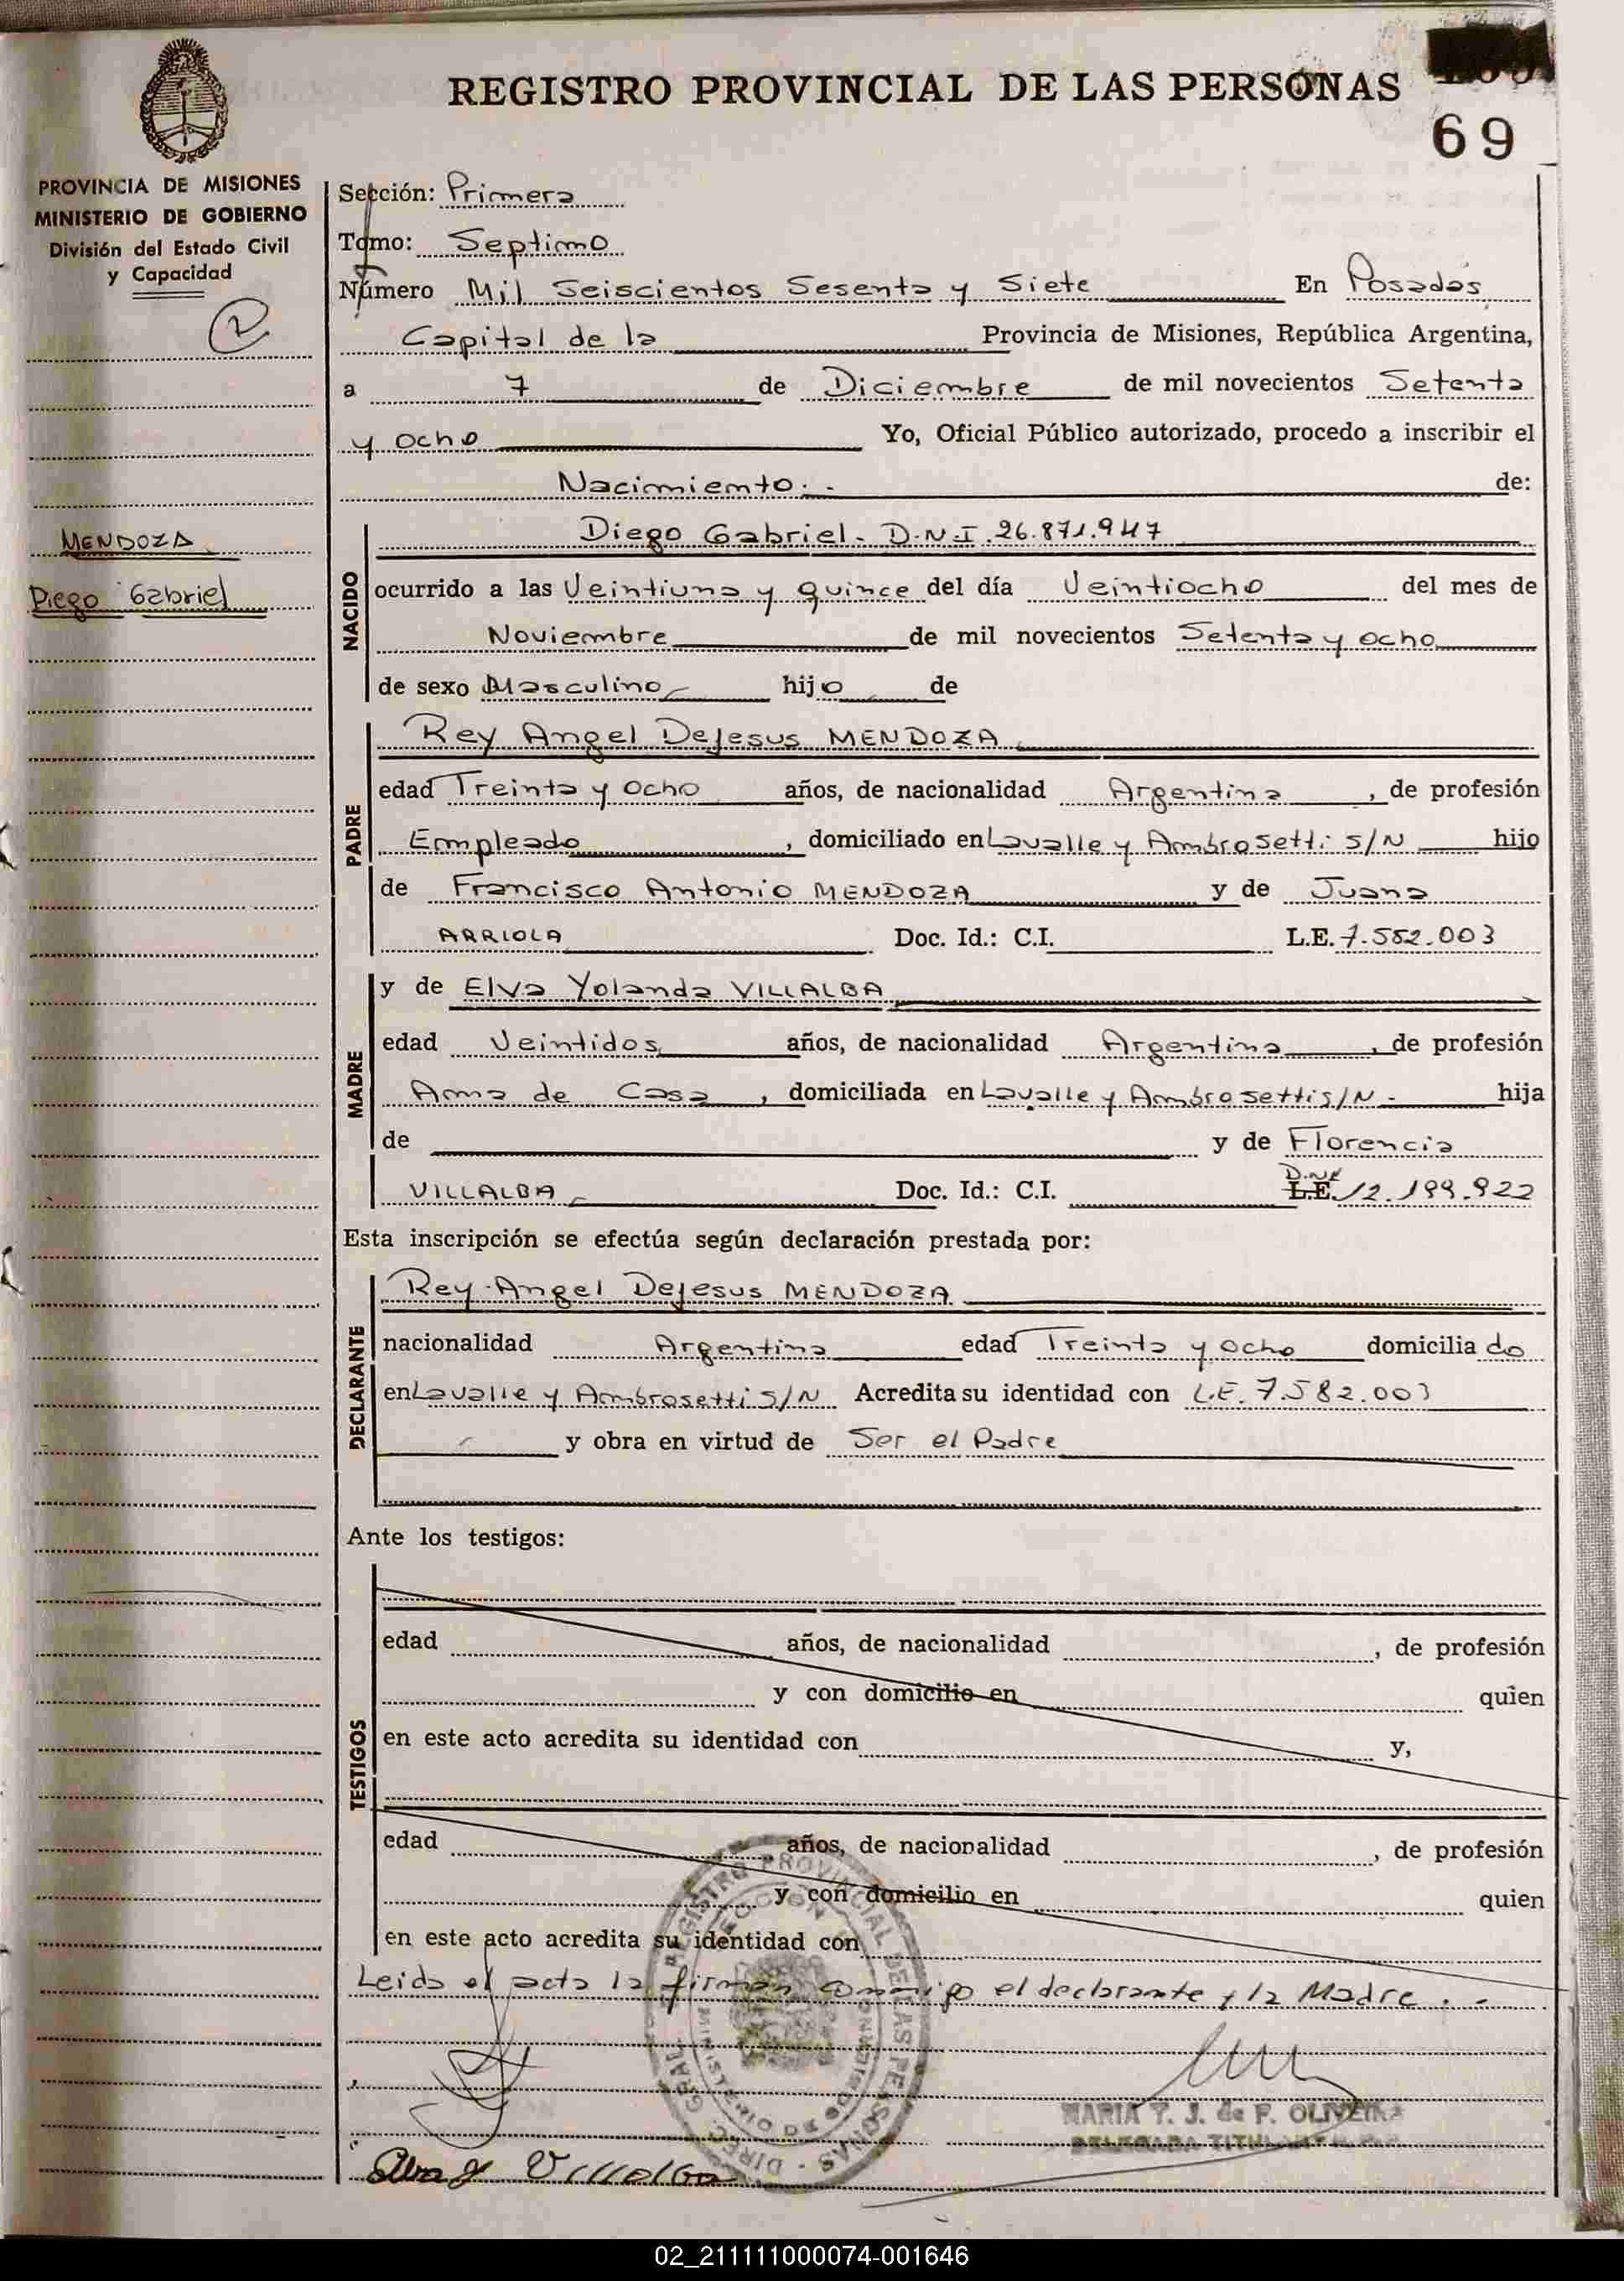 REGISTRO PROVINCIAL DE LAS PERSONAS
69
PROVINCIA DE MISIONES
MINISTERIO DE GOBIERNO
División del Estado Civil
y Capacidad
Sección: Primera
Tomo: Septimo
Número Mil Seiscientos Sesenta y Siete En Posadas
Capital de la Provincia de Misiones, República Argentina,
a 7 de Diciembre de mil novecientos Setenta
y ocho Yo, Oficial Público autorizado, procedo a inscribir el
Nacimiento.- de:
MENDOZA
Diego Gabriel
NACIDO
Diego Gabriel- D.N.I. 26.871.947
ocurrido a las Veintiuna y quince del día Veintiocho del mes de
Noviembre de mil novecientos Setenta y ocho
de sexo Masculino hijo de
PADRE
Rey Angel DeJesus MENDOZA
edad Treinta y Ocho años, de nacionalidad Argentina, de profesión
Empleado, domiciliado en Lavalle y Ambrosetti S/N hijo
de Francisco Antonio MENDOZA y de Juana
ARRIOLA Doc. Id.: C.I. L.E. 7.582.003
MADRE
y de Elva Yolanda VILLALBA
edad Veintidos años, de nacionalidad Argentina, de profesión
Ama de Casa, domiciliada en Lavalle y Ambrosetti S/N - hija
de y de Florencia
VILLALBA Doc. Id.: C.I. L.E. D.N.I 12.199.922
Esta inscripción se efectúa según declaración prestada por:
DECLARANTE
Rey Angel DeJesus MENDOZA
nacionalidad Argentina edad Treinta y Ocho domiciliado
en Lavalle y Ambrosetti S/N Acredita su identidad con L.E. 7.582.003
y obra en virtud de Ser el Padre
Ante los testigos:
TESTIGOS
edad años, de nacionalidad , de profesión
y con domicilio en quien
en este acto acredita su identidad con y,
edad años, de nacionalidad , de profesión
y con domicilio en quien
en este acto acredita su identidad con
Leida el acta la firman conmigo el declarante y la Madre. -
REGISTRO PROVINCIAL DE LAS PERSONAS - DIREC. GRAL.
MARIA T. J. de F. OLIVEIRA
DELEGADA TITULAR
Elva Y Villalba
02_211111000074-001646